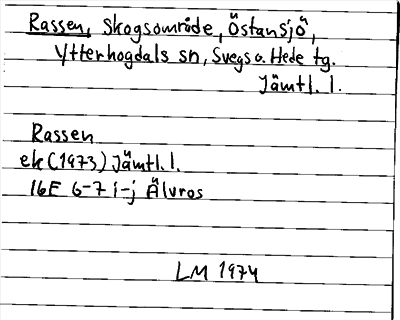 Rassen, Skogsområde, Östansjö,
Ytterhogdals sn, Svegs o. Hede tg.
Jämtl. l.
Rassen
ek (1973) Jämtl. l.
16E 6-7 i-j Älvros
LM 1974